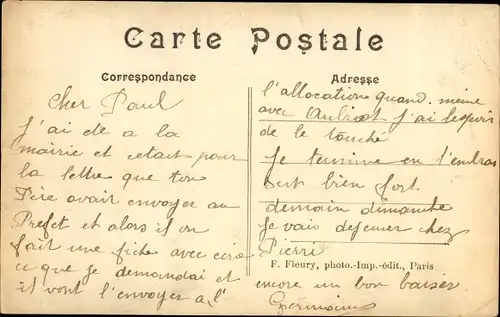 Carte Postale
Correspondance
Cher Paul
J'ai ete a la
mairie et cetait pour
la lettre que ton
Père avait envoyer au
Prefet et alors il on
fait une fiche avec
ce que je demandai et
il vont l'envoyer a l'
Adresse
l'allocation quand meme
avec j'ai
de le touché
Je termine en t'embras
sant bien fort
demain dimanche
je vais dejeuner chez
Pierre
F. Fleury, photo.-Imp.-édit., Paris
encore un bon baiser
Germaine